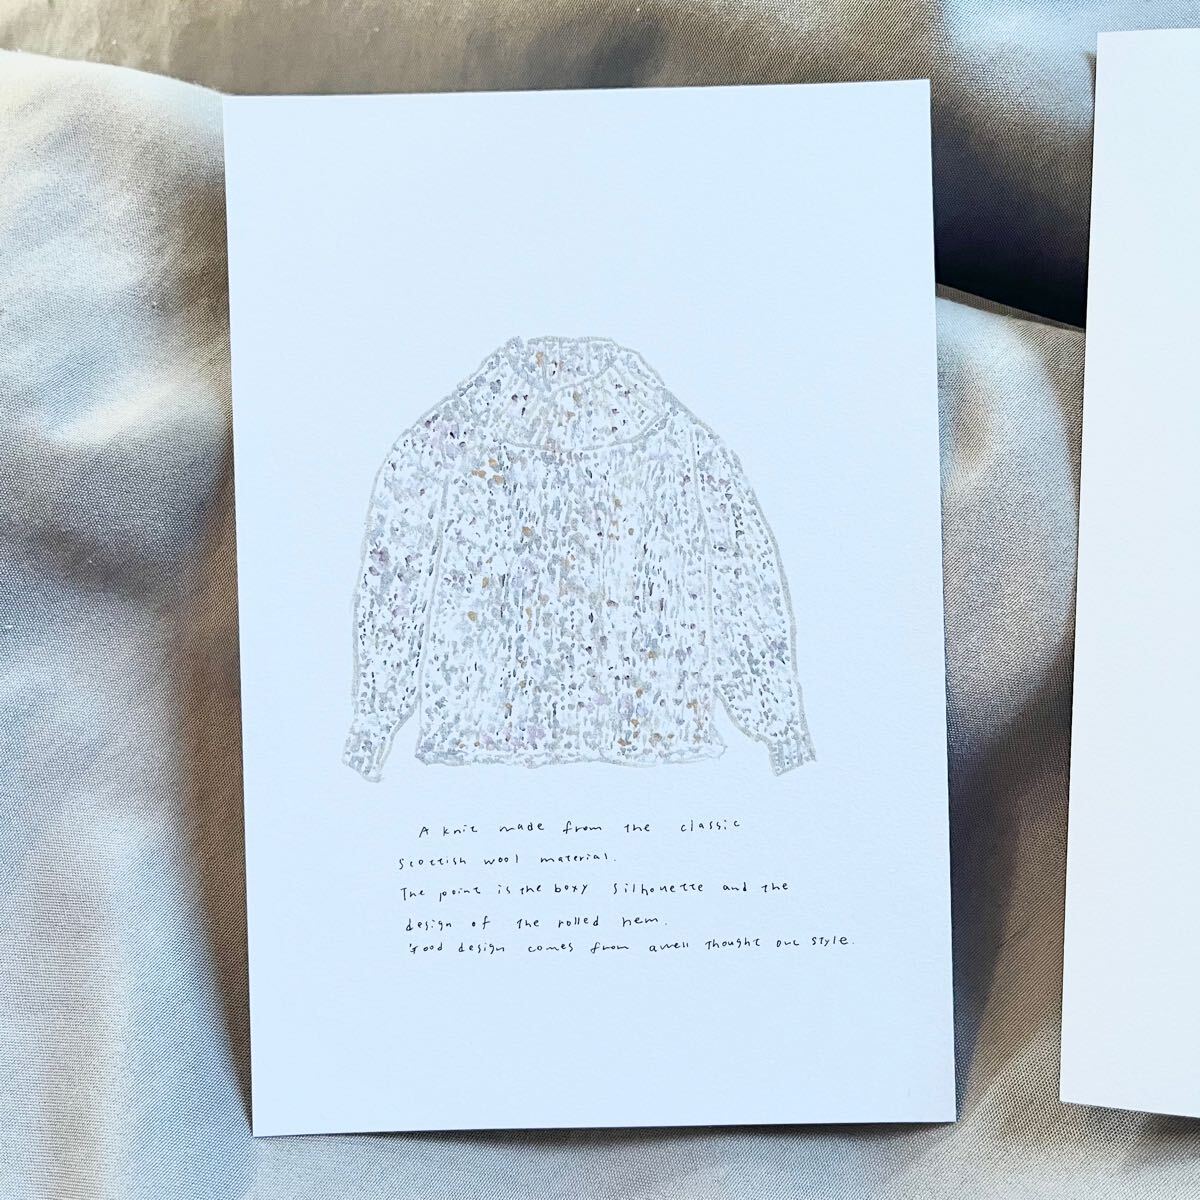 A knit made from the classic
Scottish wool material.
The point is the boxy silhouette and the
design of the rolled hem.
Good design comes from a well thought out style.